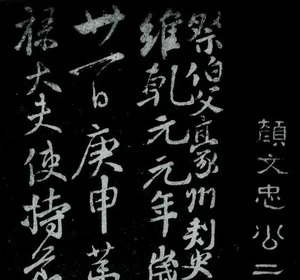 顏文忠公二
祭伯父豪州刺史
維乾元元年歲
廿一日庚申第
祿大夫使持節